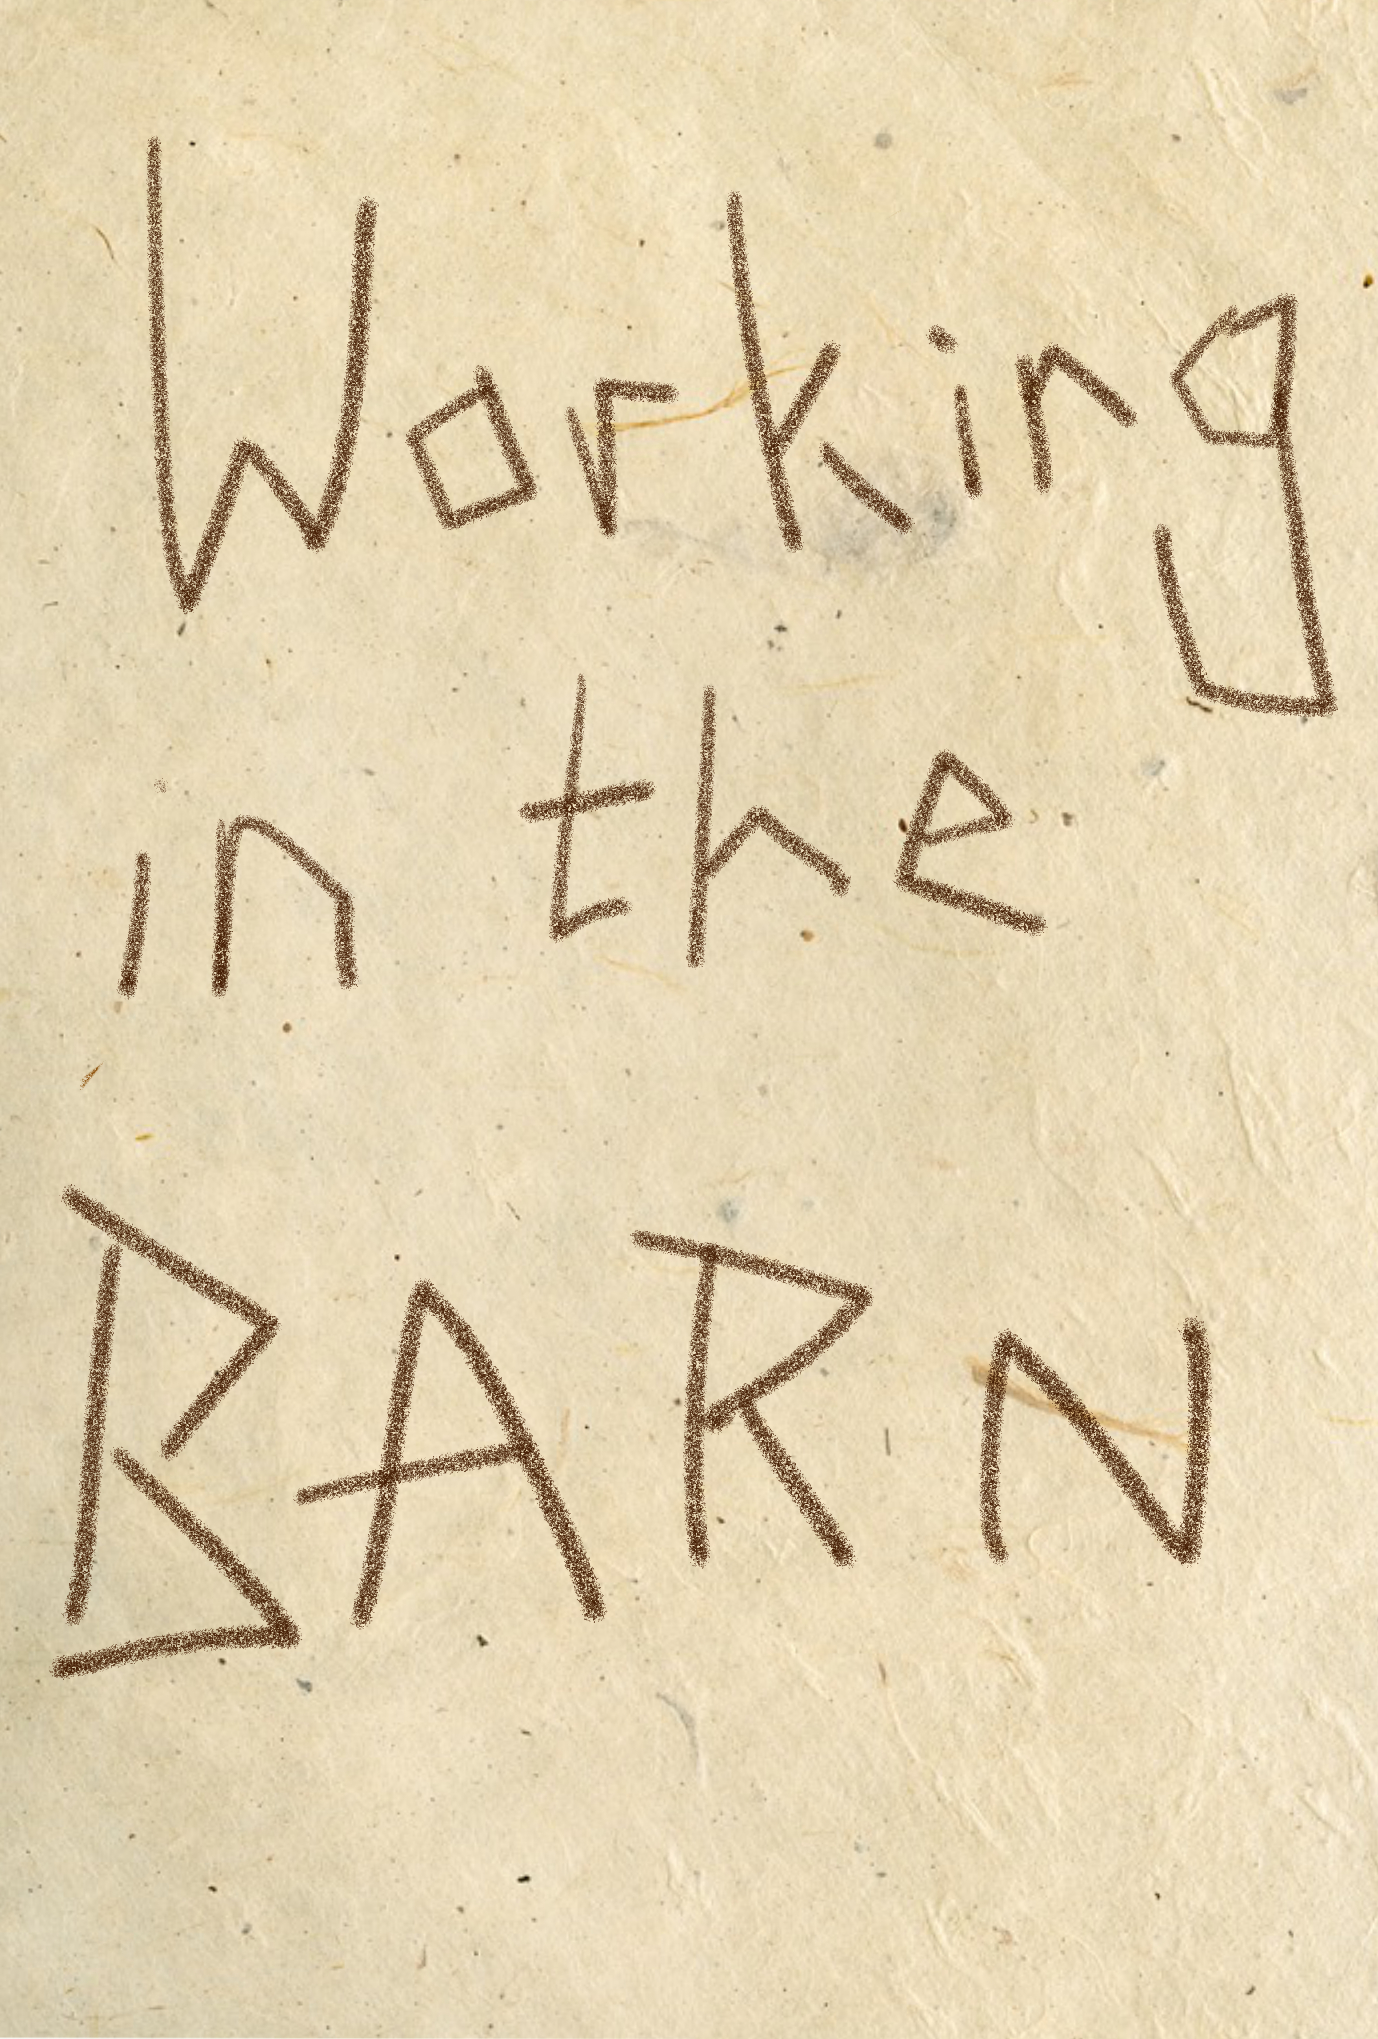 Working
in the
BARN